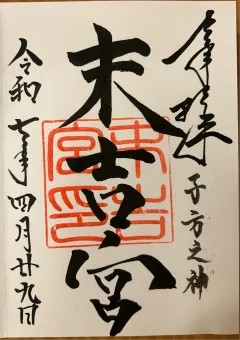 奉拝
子方之神
末吉宮
末吉宮印
令和七年四月廿九日